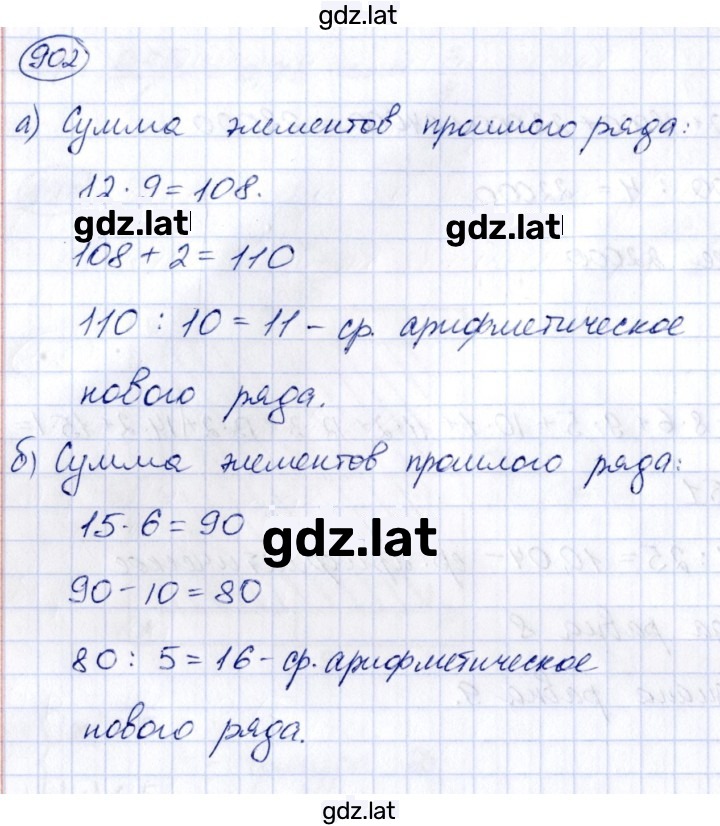 gdz.lat
902
а) Сумма элементов прошлого ряда:
12 · 9 = 108.
gdz.lat
gdz.lat
108 + 2 = 110
110 : 10 = 11 - ср. арифметическое
нового ряда.
б) Сумма элементов прошлого ряда:
15 · 6 = 90
gdz.lat
90 - 10 = 80
80 : 5 = 16 - ср. арифметическое
нового ряда.
gdz.lat